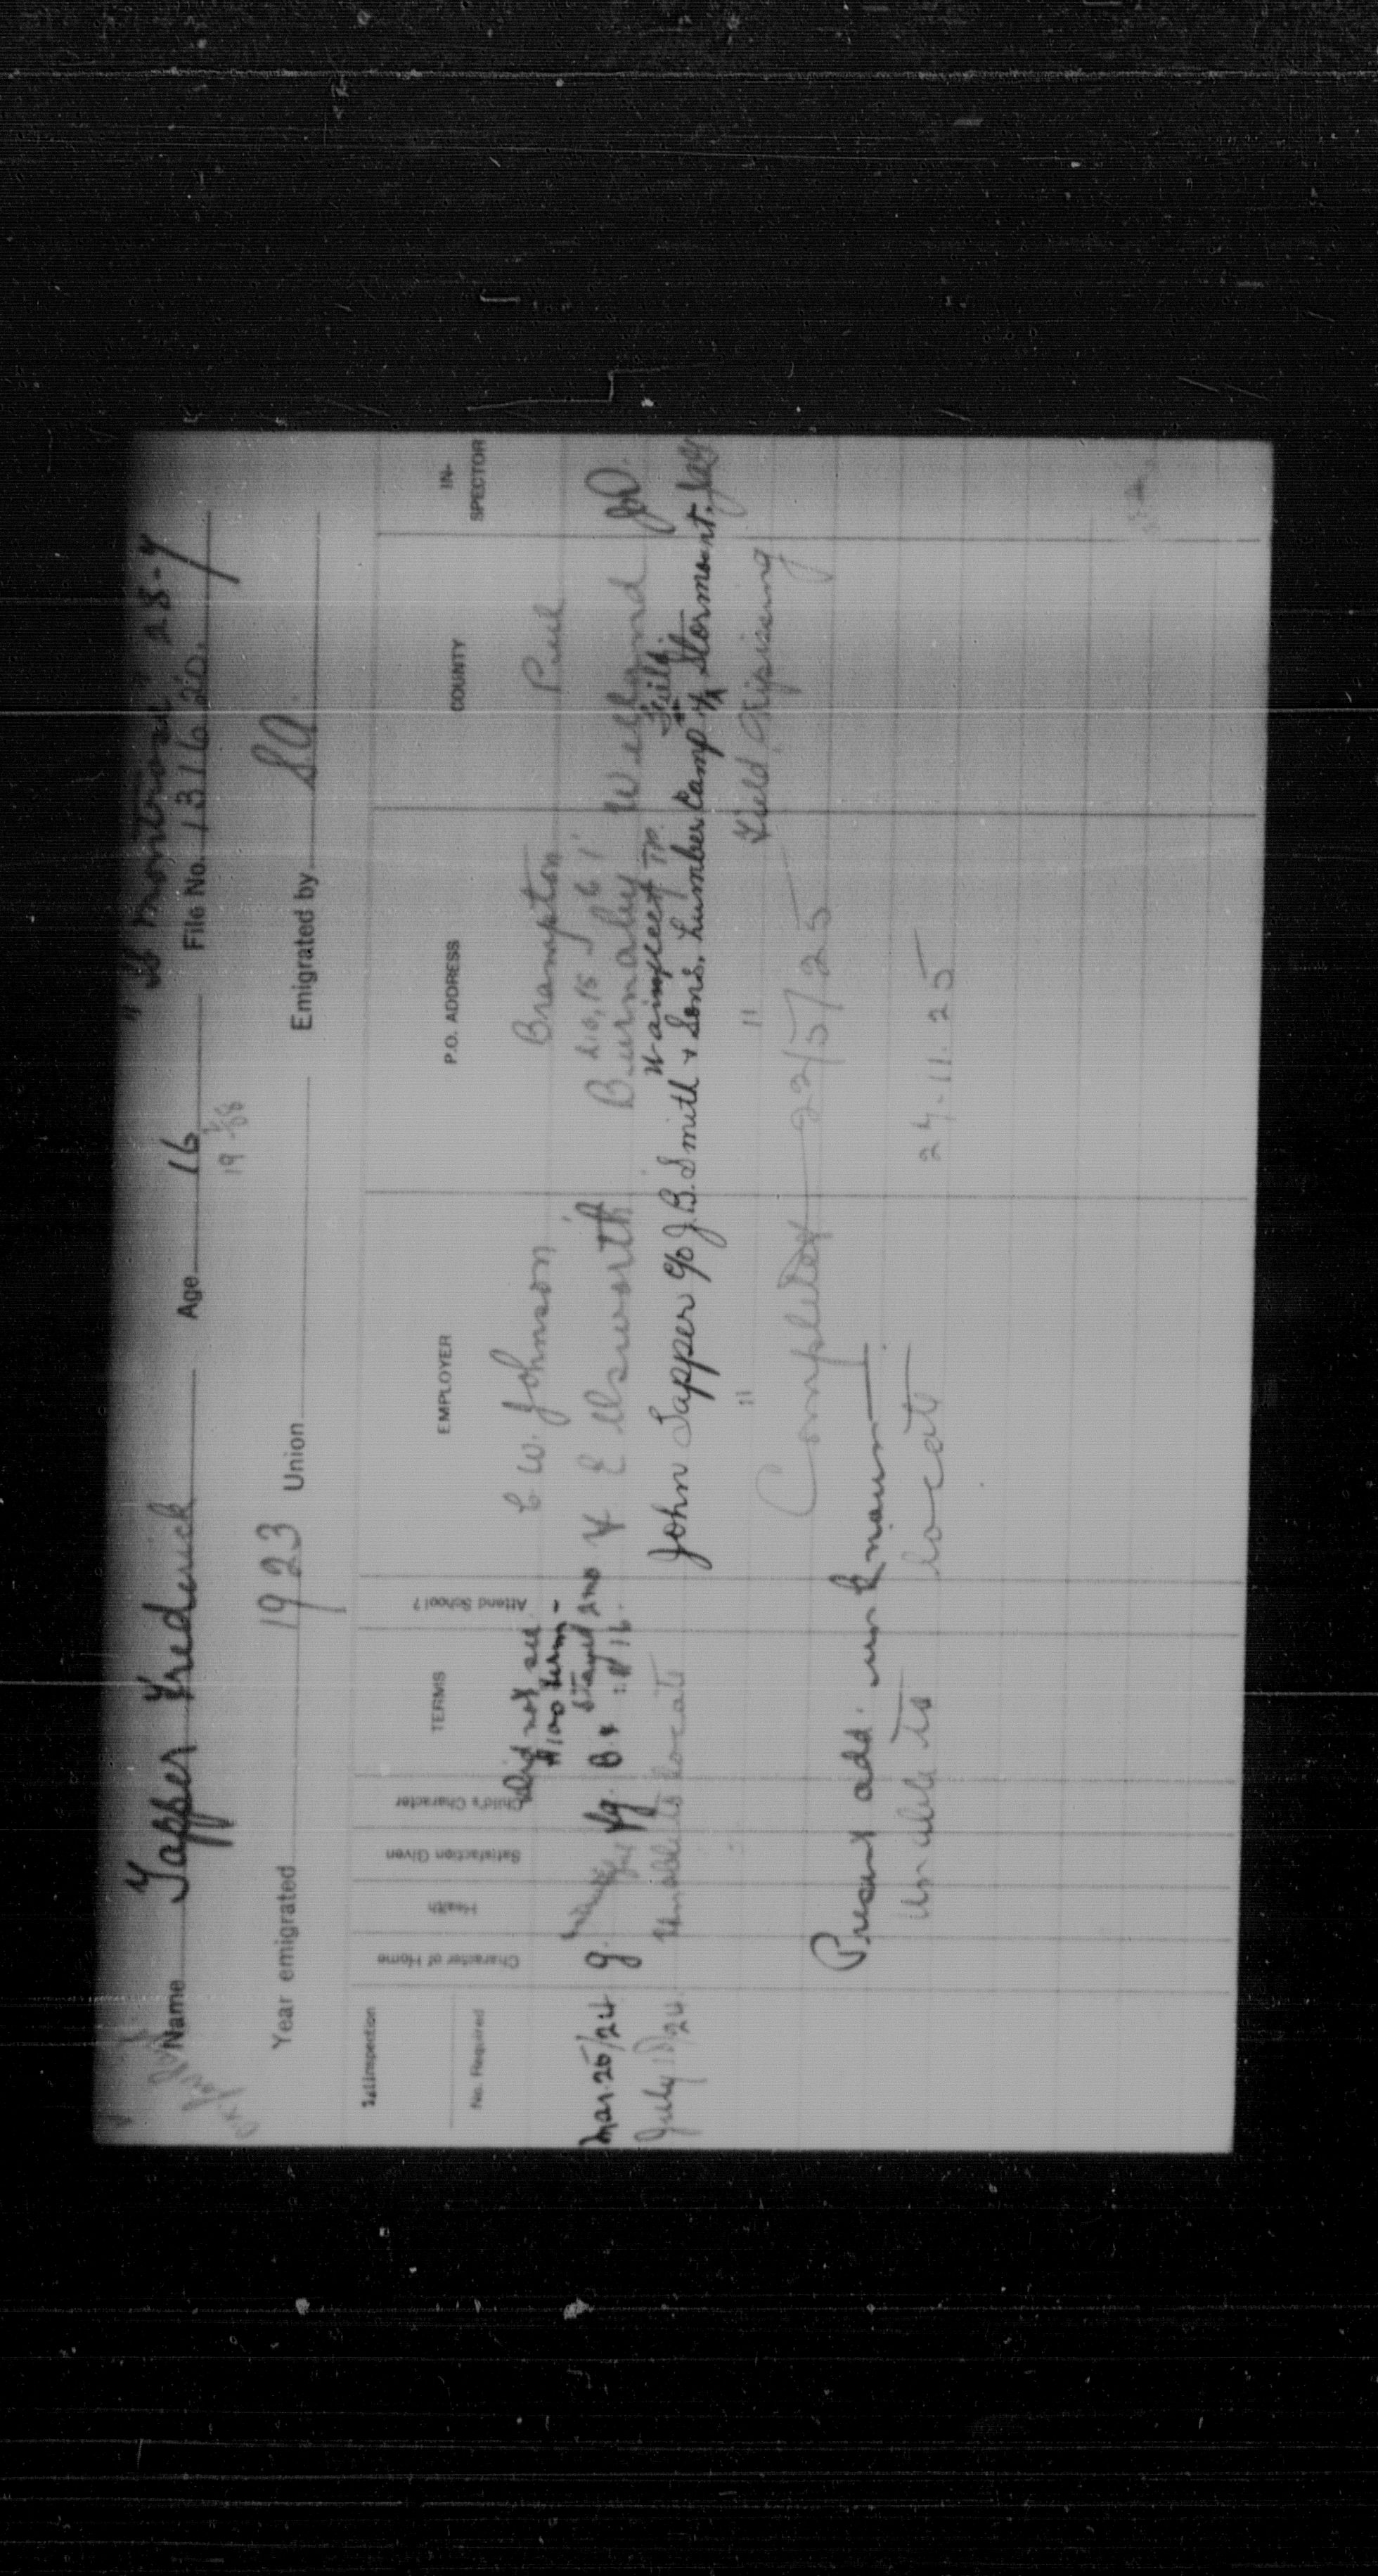 "SS Montrose" 28-4
Name Tapper Frederick Age 16 File No. 131620.
Year emigrated 1923 Union Emigrated by S.A.
1st Inspection
No. Required
Character of Home
Health
Satisfaction Given
Child's Character
TERMS
Attend School?
EMPLOYER
P.O. ADDRESS
COUNTY
IN-SPECTOR
Did not see C. W. Johnson Brampton Peel
$100 term -
stayed 2 mo
Mar. 25/24 g. Vg. $16. F Ellsworth Burnaby Welland
Wainfleet Tp. Field.
July 18/24 Unable to locate John Tapper c/o J.B. Smith & Sons, Lumber Camp Stormont.
" " Field Nipissing
Completed 22/5/25
Present add. unknown
Unable to locate 24.11.25